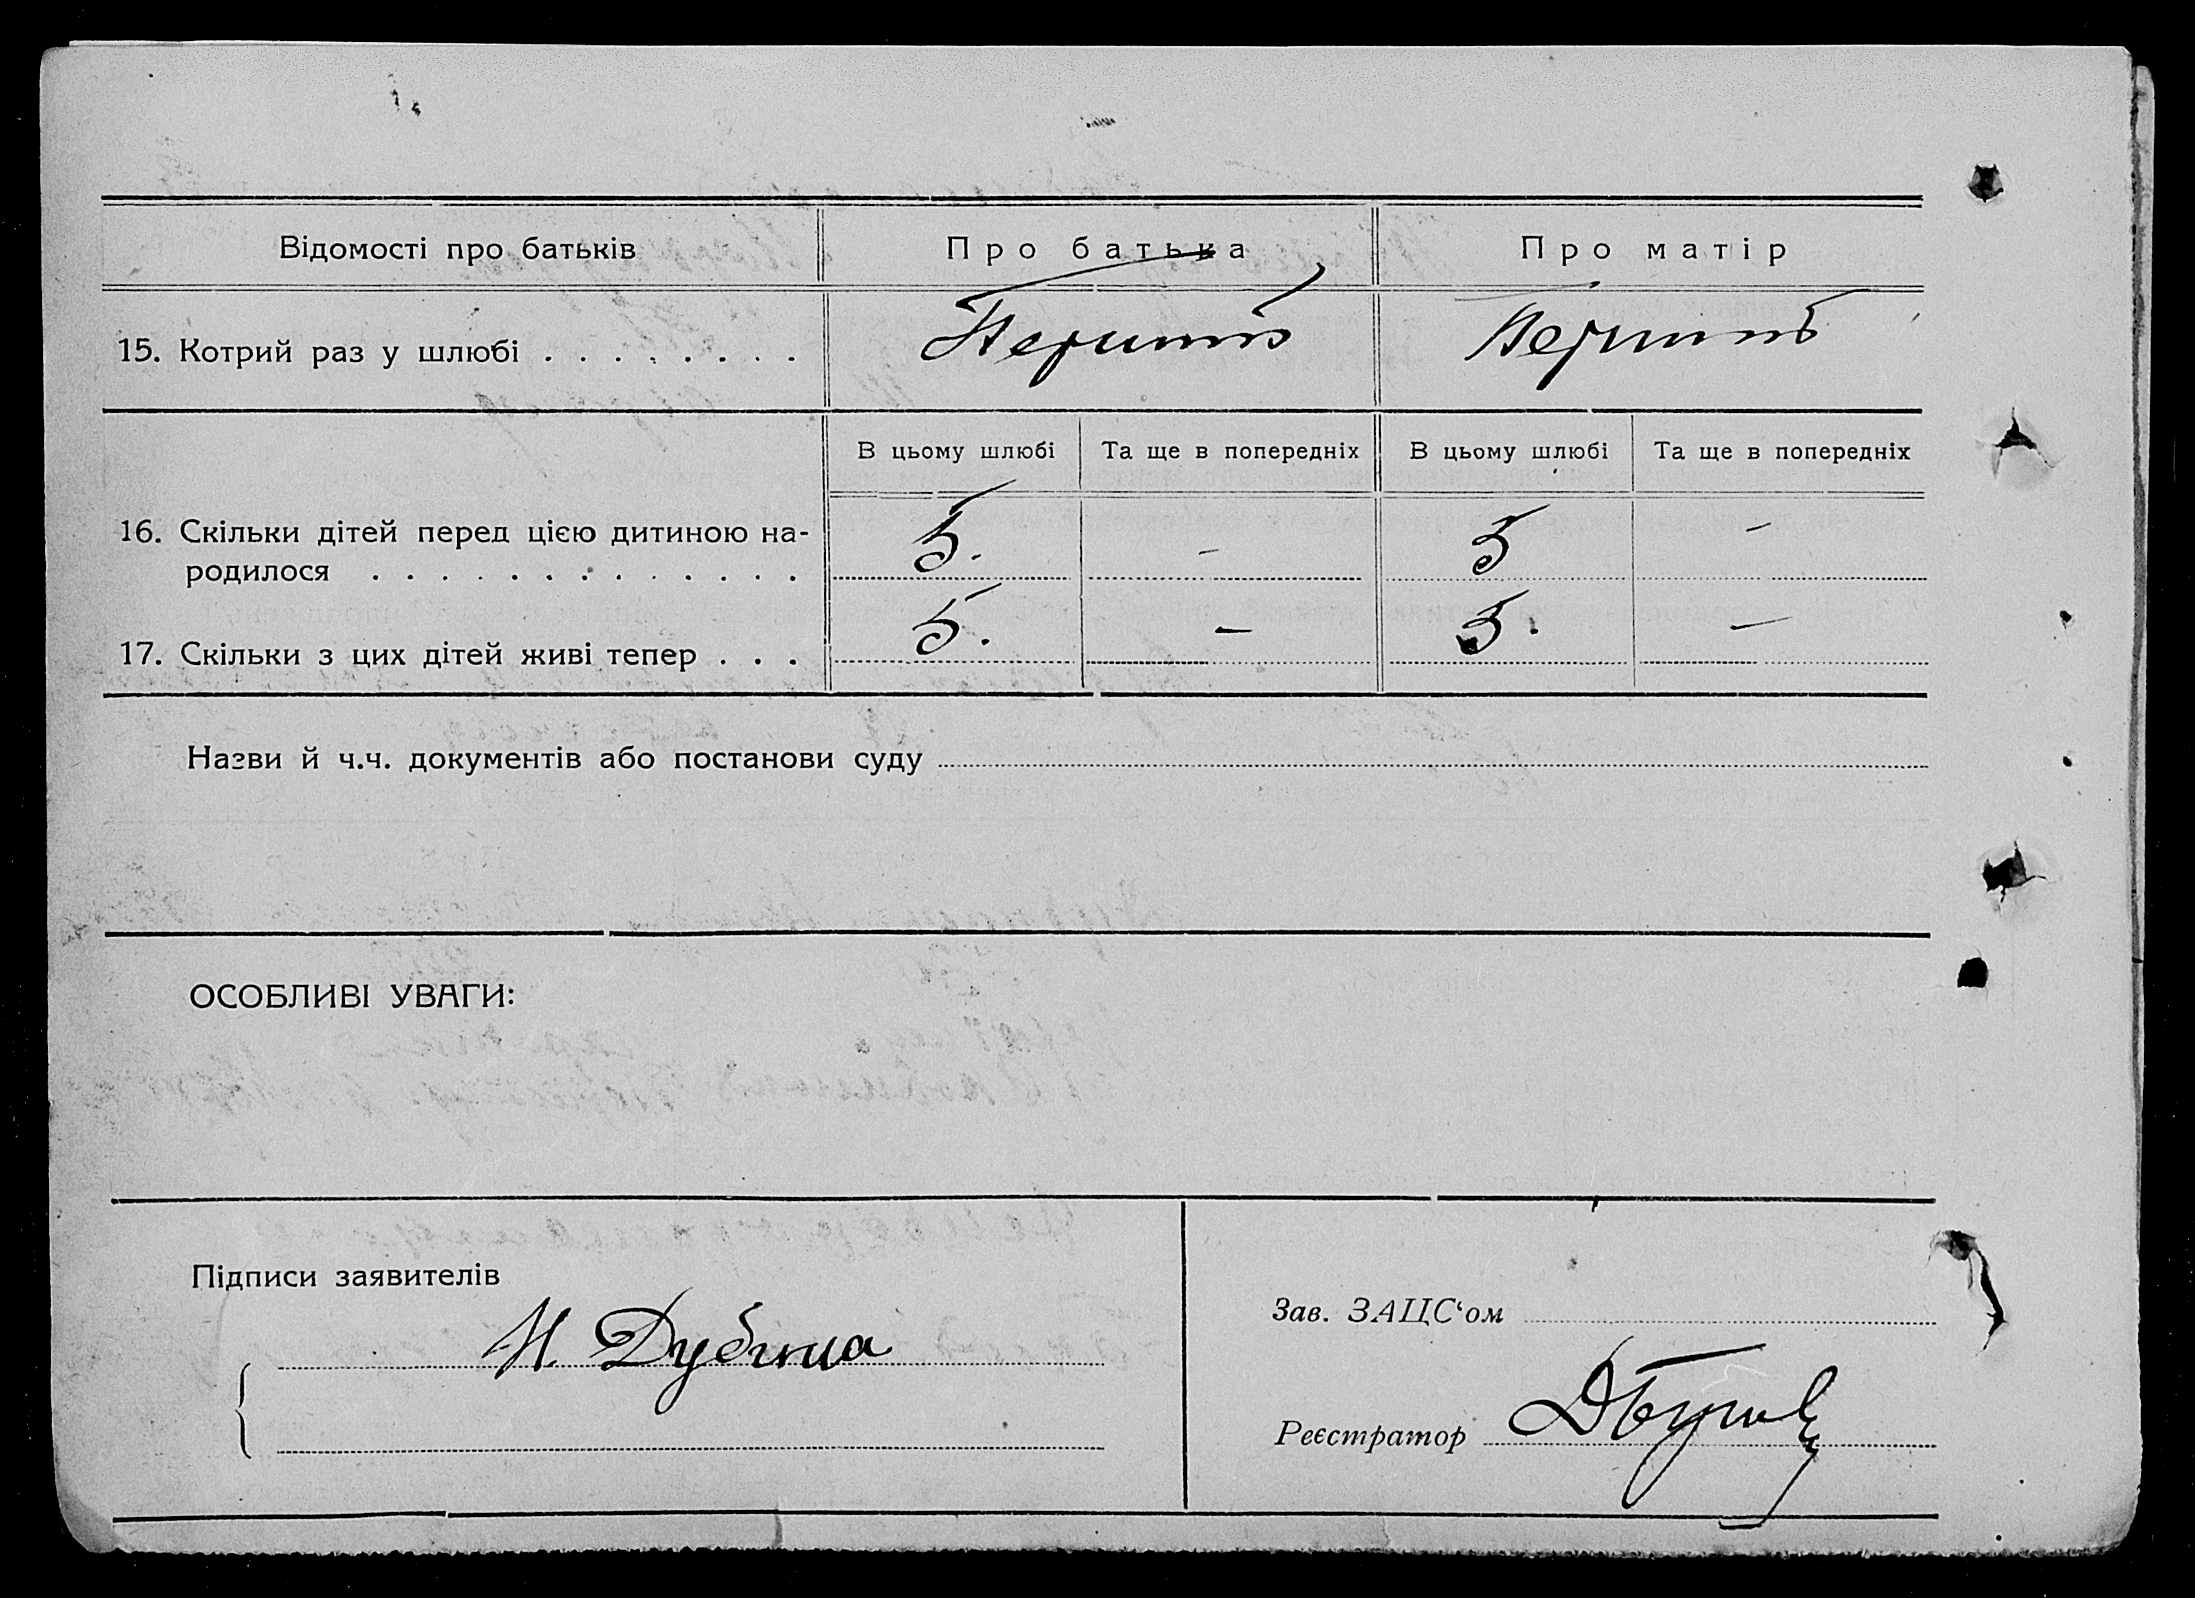 Відомості про батьків
Про батька
Про матір
15. Котрий раз у шлюбі . . . . . . . .
Перший
Перший
В цьому шлюбі
Та ще в попередніх
В цьому шлюбі
Та ще в попередніх
16. Скільки дітей перед цією дитиною на-
родилося . . . . . . . . . . . . .
5. - 5 -
17. Скільки з цих дітей живі тепер . . .
5. - 5. -
Назви й ч.ч. документів або постанови суду
ОСОБЛИВІ УВАГИ:
Підписи заявителів
Н. Дубина
Зав. ЗАЦС‘ом
Реєстратор